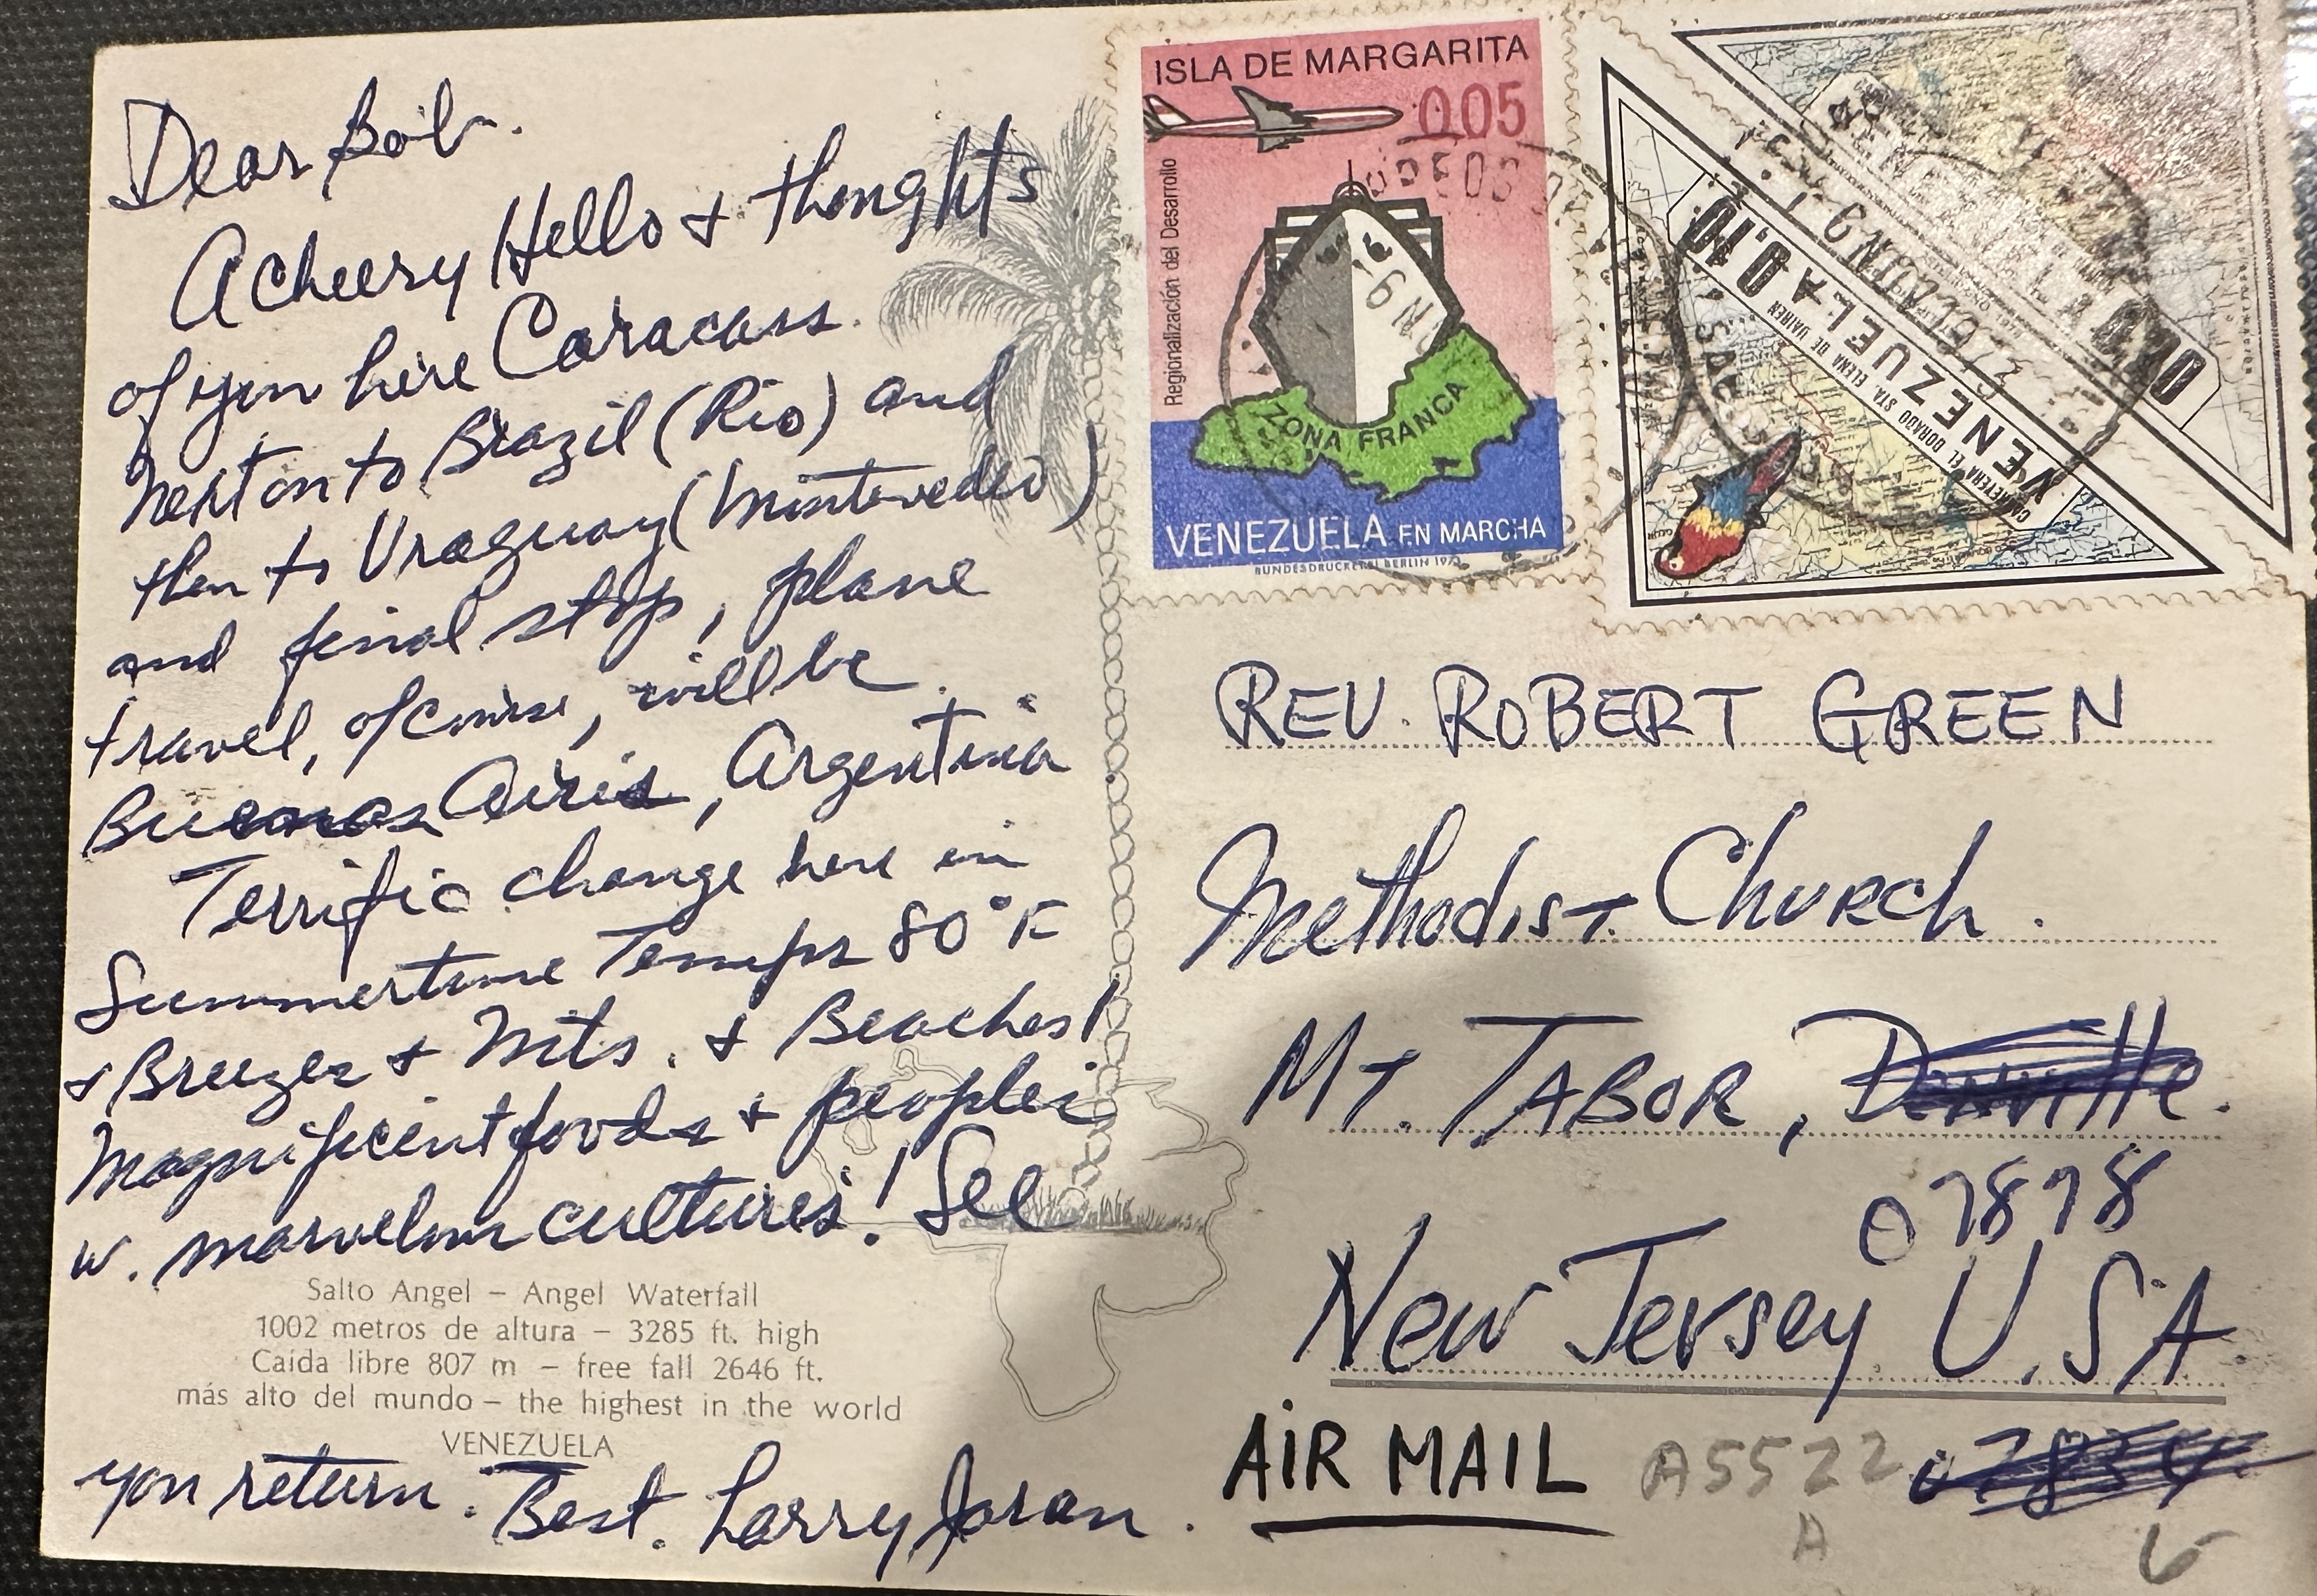 Dear Bob.
A cheery Hello + thoughts
of you here Caracas.
Next on to Brazil (Rio) and
then to Uraguay (Montevedeo)
and final stop, plane
travel, of course, will be
Buenos Aires, Argentina
Terrific change here in
Summertime Temps 80°F
+ Breezes + Mts. + Beaches!
Magnificent foods + peoples
w. marvelous cultures! See
Salto Angel – Angel Waterfall
1002 metros de altura – 3285 ft. high
Caida libre 807 m – free fall 2646 ft.
más alto del mundo – the highest in the world
VENEZUELA
you return. Best. Larry
ISLA DE MARGARITA
0.05
Regionalización del Desarrollo
ZONA FRANCA
VENEZUELA EN MARCHA
BUNDESDRUCKEREI BERLIN
VENEZUELA 0.10
CARRETERA EL DORADO STA. ELENA DE UAIREN
REV. ROBERT GREEN
Methodist Church.
MT. TABOR, Denville.
07878
New Jersey U.SA
AIR MAIL
A5522
07834
A
6